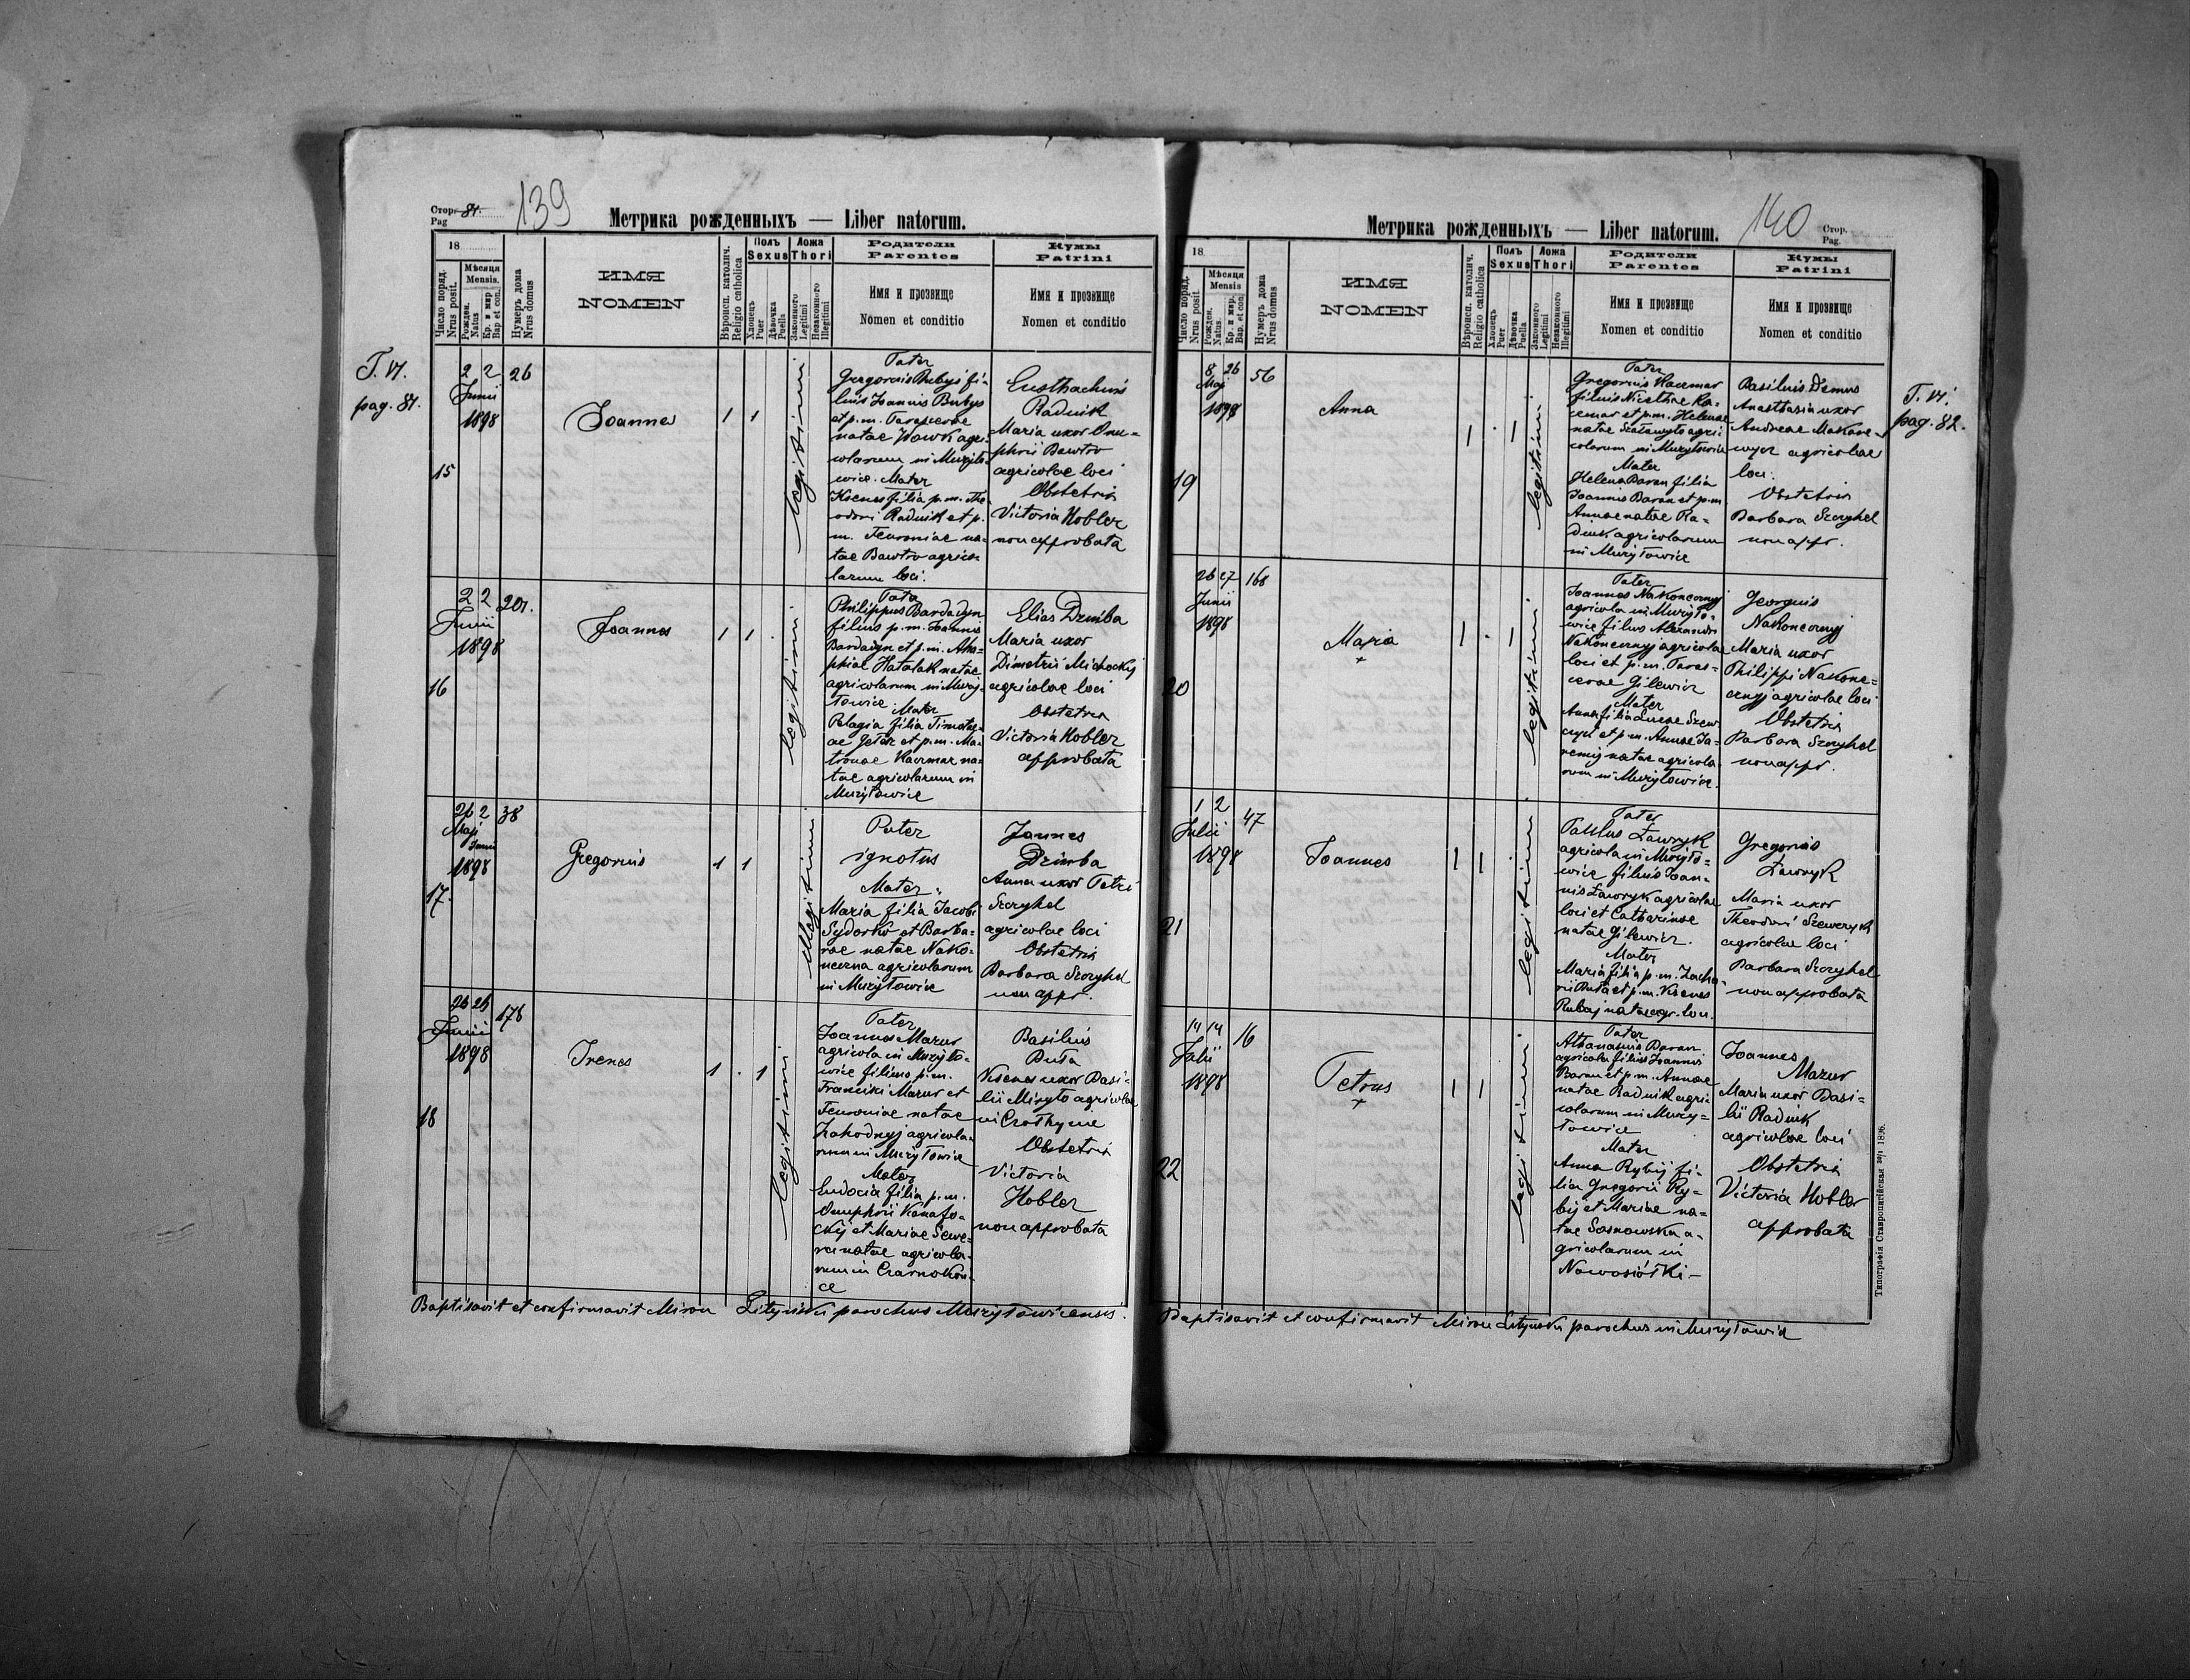 Стор. 81.
Pag
139
Метрика рожденныхъ — Liber natorum.
18
Число поряд.
Nrus posit.
Мѣсяця
Mensis.
Рожден.
Natus
Кр. и мир
Bap et con.
Нумеръ дома
Nrus domus
ИМЯ
NOMEN
Вѣроисп. католич.
Religio catholica
Полъ
Sexus
Хлопецъ
Puer
Дѣвочка
Puella
Ложа
Thori
Законного
Legitimi
Незаконного
Illegitimi
Родители
Parentes
Имя и прозвище
Nomen et conditio
Кумы
Patrini
Имя и прозвище
Nomen et conditio
T. VI.
pag. 81.
15
2 2 26
Junii
1898
Joannes
1 1
legitimi
Pater
Gregorius Bubys fi-
lius Joannis Bubys
et p.m. Parascevae
natae Wowk agri-
colarum in Muzyło-
wice. Mater
Ksenes filia p.m. The-
odori Radnik et p.
m. Fevroniae na-
tae Bawtro agrico-
larum loci.
Eusthachius
Radnik
Maria uxor Onu-
phrii Bawtro
agricolae loci
Obstetrix
Victoria Hobler
non approbata
16
2 2 201.
Junii
1898
Joannes
1 1
legitimi
Pater
Philippus Bardadyn
filius p.m. Joannis
Bardadyn et p.m. Aha-
phiae Hatalak natae
agricolarum in Muzy-
łowice Mater
Pelagia filia Timothe-
ae Getar et p.m. Ma-
tronae Kaczmar na-
tae agricolarum in
Muzyłowice
Elias Dzmba
Maria uxor
Dimetrii Michockij
agricolae loci
Obstetrix
Victoria Hobler
approbata
17.
26 2 38
Maji
Junii
1898
Gregorius
1 1
illegitimi
Pater
ignotus
Mater
Maria filia Jacobi
Sydorko et Barba-
rae natae Nako-
neczna agricolarum
in Muzyłowice
Joannes
Dzimba
Anna uxor Petri
Szczyhel
agricolae loci
Obstetrix
Barbara Szczyhel
non appr.
18
26 26 178
Junii
1898
Irenes
1 . 1
legitimi
Pater
Joannes Mazur
agricola in Muzyło-
wice filius p.m.
Francixi Mazur et
Fevroniae natae
Zahodnyj agricola-
rum in Muzyłowice
Mater
Eudocia filia p.m.
Onuphrii Kanafo-
ckij et Mariae Sewe-
natae agricola-
rum in Czarnokoni-
ce
Basilius
Buła
Ksenes uxor Basi-
lii Miryło agricolae
in Czołhynie
Obstetrix
Victoria
Hobler
non approbata
Baptisavit et confirmavit Miron Lityński parochus Muzyłowicensis.
Метрика рожденныхъ — Liber natorum.
140
Стор.
Pag.
18
Число поряд.
Nrus posit.
Мѣсяця
Mensis
Рожден.
Natus.
Кр. и мир.
Bap. et con
Нумеръ дома
Nrus domus
ИМЯ
NOMEN
Вѣроисп. католич.
Religio catholica
Полъ
Sexus
Хлопецъ
Puer
Дѣвочка
Puella
Ложа
Thori
Законного
Legitimi
Незаконного
Illegitimi
Родители
Parentes
Имя и прозвище
Nomen et conditio
Кумы
Patrini
Имя и прозвище
Nomen et conditio
T. VI.
pag. 82.
19
8 26 56
Maj
1898
Anna
1 . 1
legitimi
Pater
Gregorius Kaczmar
filius Nicethae Ka-
czmar et p.m. Helenae
natae agri-
colarum in Muzyłowice
Mater
Helena Baran filia
Joannis Baran et p.m.
Annae natae Ra-
dnik agricolarum
in Muzyłowice
Basilius Demus
Anasthasia uxor
Andreae Makare-
wycz agricolae
loci.
Obstetrix
Barbara Szczyhel
non appr.
20
26 27 168
Junii
1898
Maria
+
1 . 1
legitimi
Pater
Joannes Nakonecznyj
agricola in Muzyło-
wice filius Alexandri
Nakonecznyj agricolae
loci et p.m. Paras-
cevae Gilewicz
Mater
Anna filia Lucae Szew-
czyk et p.m. Annae Ja-
remij natae agricola-
rum in Muzyłowice.
Georgius
Nakonecznyj
Maria uxor
Philippi Nakone-
cznyj agricolae loci
Obstetrix
Barbara Szczyhel
non appr.
21
1 2 47
Julii
1898
Joannes
1 1
legitimi
Pater
Paulus Ławryk
agricola in Muzyło-
wice filius Joan-
nis Ławryk agricolae
loci et Catharinae
natae Gilewicz.
Mater
Maria filia p.m. Zacha-
rii Buła et p.m. Ksenes
Rubaj natae agr. loci.
Gregorius
Ławryk
Maria uxor
Theodori Szewczyk
agricolae loci
Barbara Szczyhel
non approbata
22
14 14 16
Julii
1898
Petrus
+
1 1
legitimi
Pater
Athanasius Baran
agricola filius Joannis
Baran et p.m. Annae
natae Radnik agri-
colarum in Muzy-
łowice
Mater
Anna Rybij fi-
lia Gregorii Ry-
bij et Mariae na-
tae Sosnowska a-
gricolarum in
Nowosiółki –
Joannes
Mazur
Maria uxor Basi-
lii Radnik
agricolae loci
Obstetrix
Victoria Hobler
approbata
Baptisavit et confirmavit Miron Lityński parochus in Muzyłowice
Типографія Ставропигійская 1896.